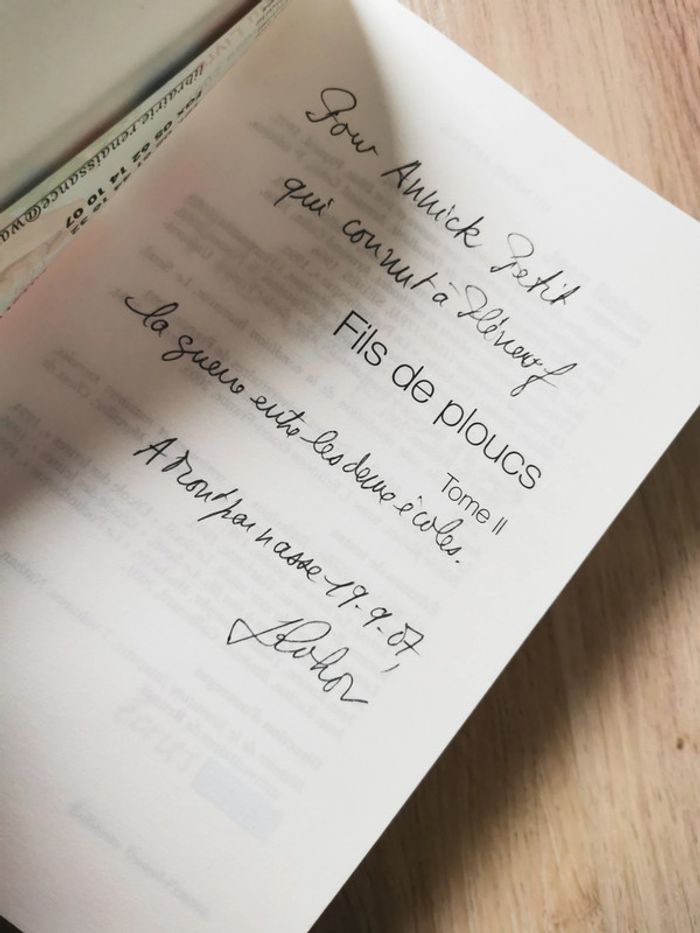 Pour Annick Petit
qui connut à Pléneuf
Fils de ploucs
la guerre entre les deux écoles.
Tome II
19-9-07,
JRohou
librairie.renaissance@wa
FAX 05 02 14 10 07